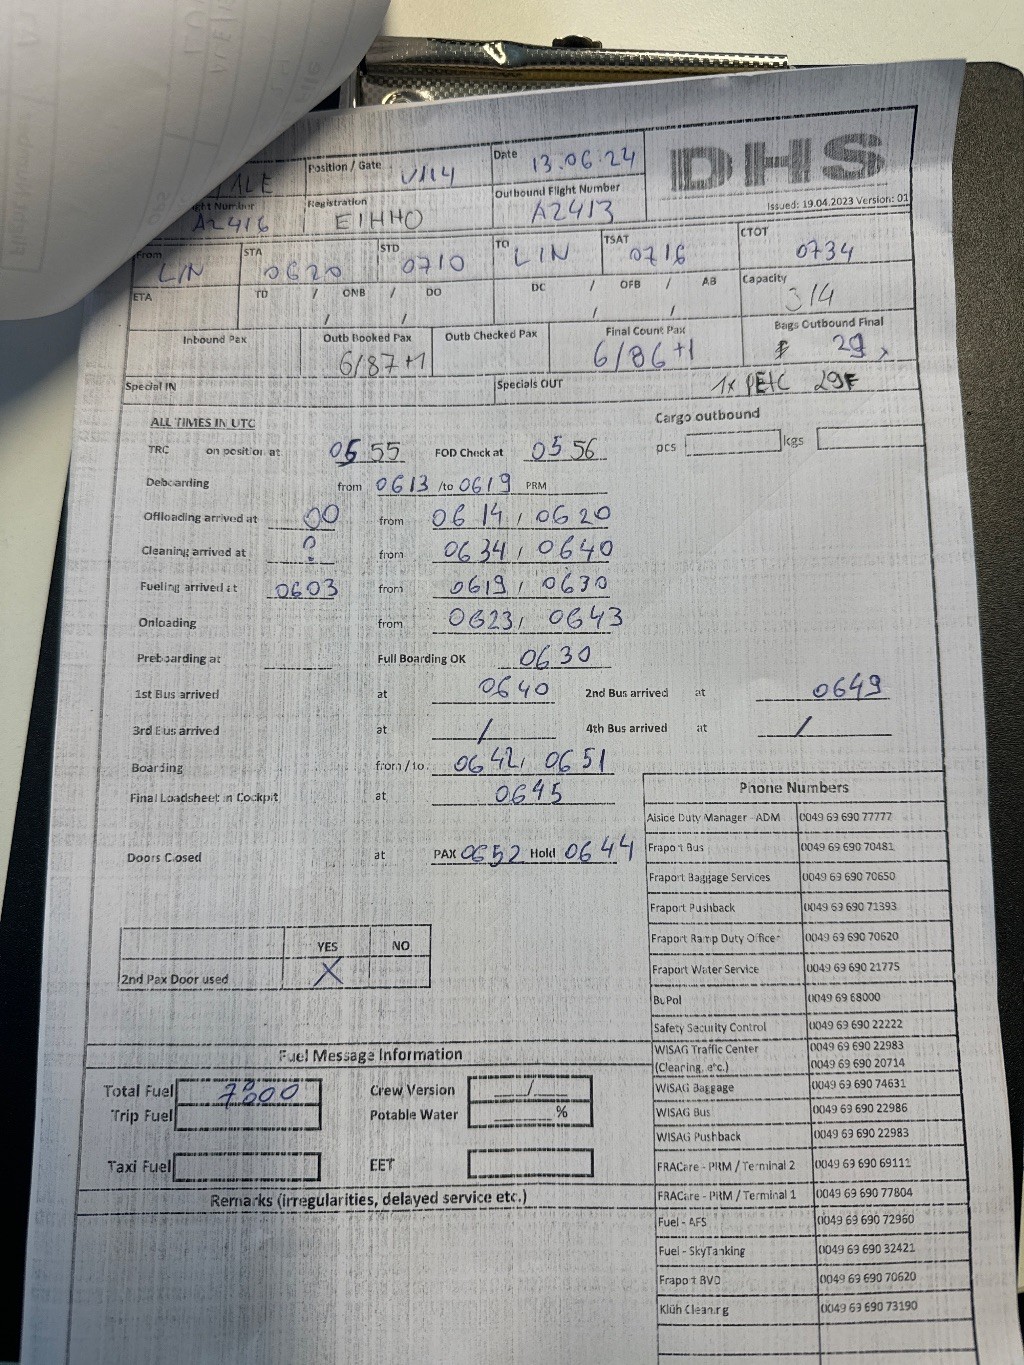 Position / Gate V114
Date 13.06.24
DHS
Issued: 19.04.2023 Version: 01
Registration EIHHO
Outbound Flight Number AZ413
AZ416
From LIN
STA 0620
STD 0710
TO LIN
TSAT 0716
CTOT 0734
ETA
TD / ONB / DO
DC / OFB / AB
/ /
/ /
Capacity 314
Inbound Pax
Outb Booked Pax 6/87+1
Outb Checked Pax
Final Count Pax 6/86+1
Bags Outbound Final 29
Special IN
Specials OUT 1x PETC 29F
ALL TIMES IN UTC
Cargo outbound
pcs kgs
TRC on position at 0555 FOD Check at 0556
Deboarding from 0613 /to 0619 PRM
Offloading arrived at 00 from 0614 / 0620
Cleaning arrived at ? from 0634 / 0640
Fueling arrived at 0603 from 0619 / 0630
Onloading from 0623 / 0643
Preboarding at Full Boarding OK 0630
1st Bus arrived at 0640 2nd Bus arrived at 0649
3rd Bus arrived at / 4th Bus arrived at /
Boarding from / to. 0642 / 0651
Final Loadsheet in Cockpit at 0645
Doors Closed at PAX 0652 Hold 0644
YES NO
2nd Pax Door used X
Phone Numbers
Aisice Duty Manager - ADM 0049 69 690 77777
Fraport Bus 0049 69 690 70481
Fraport Baggage Services 0049 69 690 70650
Fraport Pushback 0049 69 690 71393
Fraport Ramp Duty Officer 0049 69 690 70620
Fraport Water Service 0049 69 690 21775
BuPol 0049 69 68000
Safety Security Control 0049 69 690 22222
WISAG Traffic Center 0049 69 690 22983
(Clearing, etc.) 0049 69 690 20714
WISAG Baggage 0049 69 690 74631
WISAG Bus 0049 69 690 22986
WISAG Pushback 0049 69 690 22983
FRACare - PRM / Terminal 2 0049 69 690 69111
FRACare - PRM / Terminal 1 0049 69 690 77804
Fuel - AFS 0049 69 690 72960
Fuel - SkyTanking 0049 69 690 32421
Fraport BVD 0049 69 690 70620
Klüh Cleaning 0049 69 690 73190
Fuel Message Information
Total Fuel 7300
Trip Fuel
Taxi Fuel
Crew Version /
Potable Water %
EET
Remarks (irregularities, delayed service etc.)